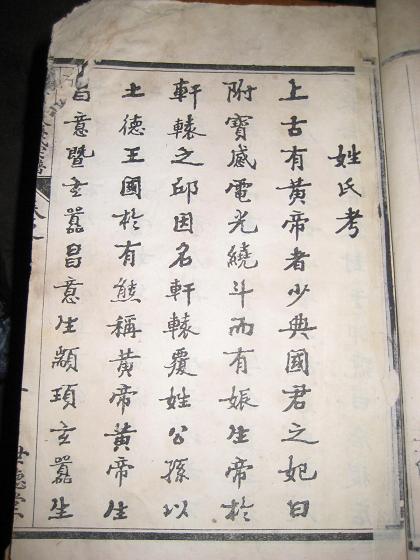 姓氏考
上古有黃帝者少典國君之妃曰
附寶感電光繞斗而有娠生帝於
軒轅之邱因名軒轅覆姓公孫以
土德王國於有熊稱黃帝黃帝生
昌意暨玄囂昌意生顓頊玄囂生
世德堂